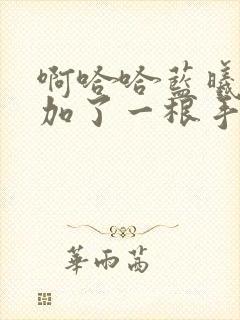 啊哈哈蓝曦
加了一根手
華雨茜